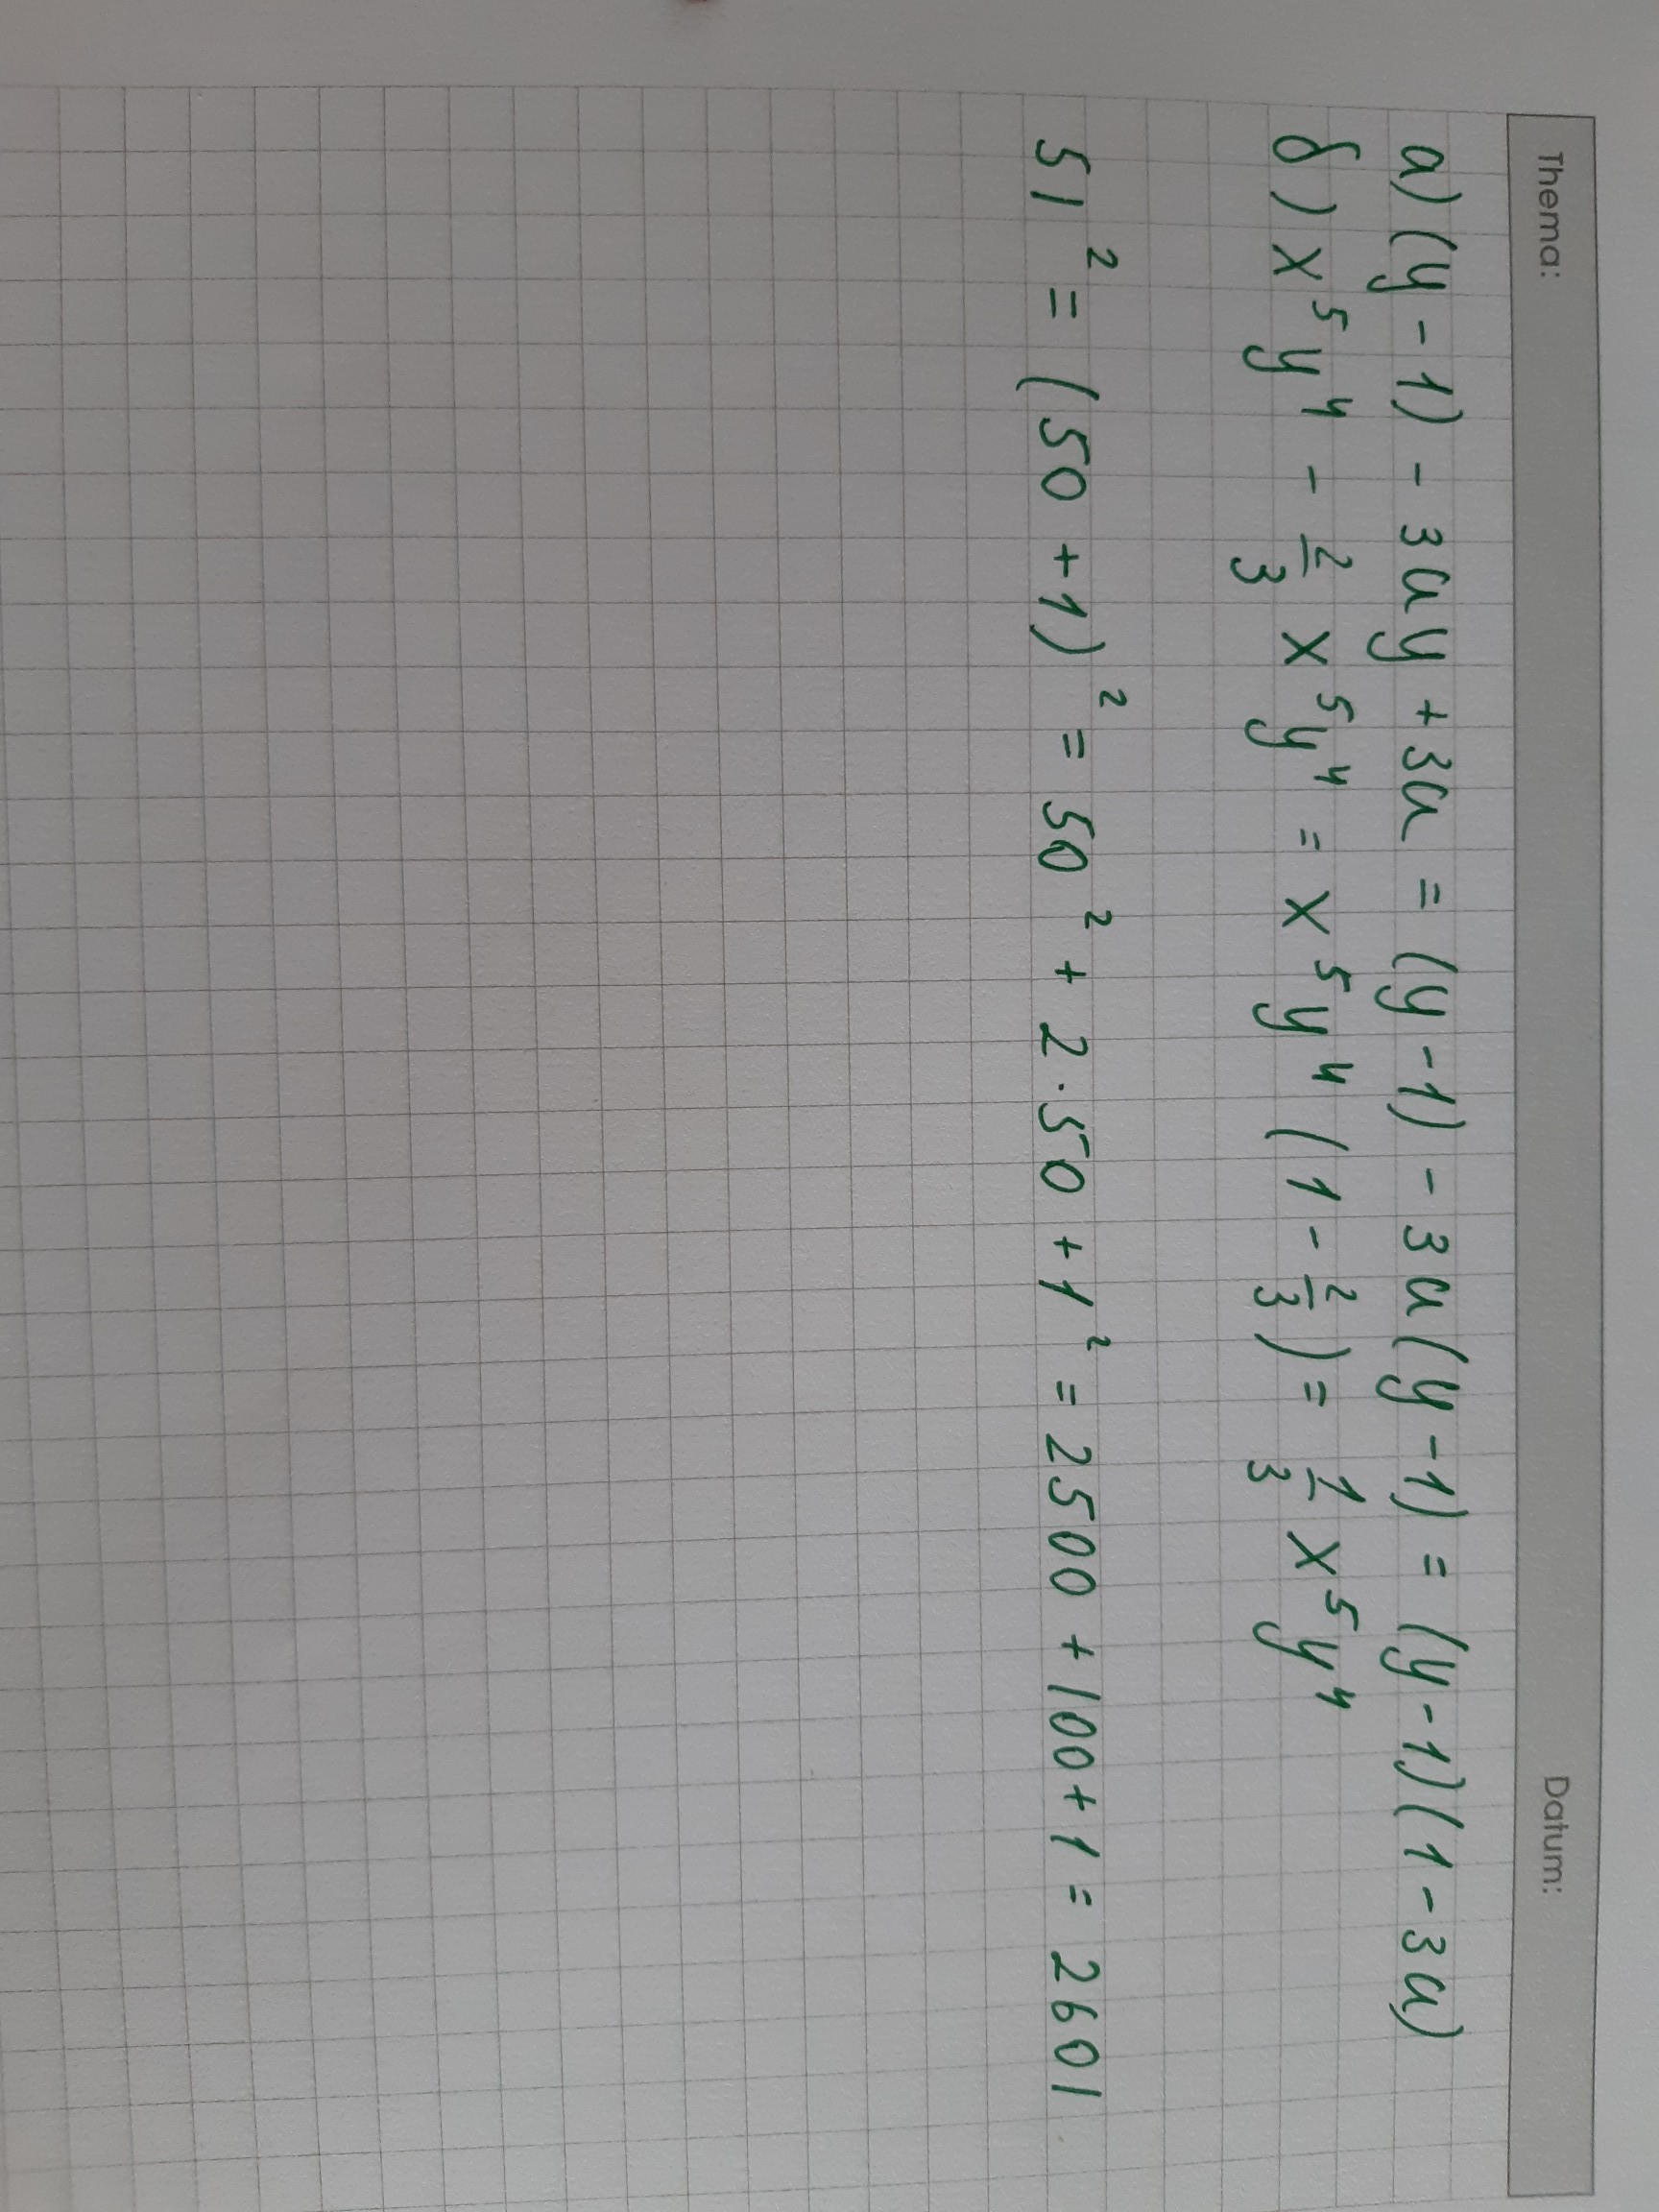 Thema: Datum:
а) (y - 1) - 3ay + 3a = (y - 1) - 3a(y - 1) = (y - 1)(1 - 3a)
б) x⁵y⁴ - 2/3 x⁵y⁴ = x⁵y⁴ (1 - 2/3) = 1/3 x⁵y⁴
51² = (50 + 1)² = 50² + 2·50 + 1² = 2500 + 100 + 1 = 2601